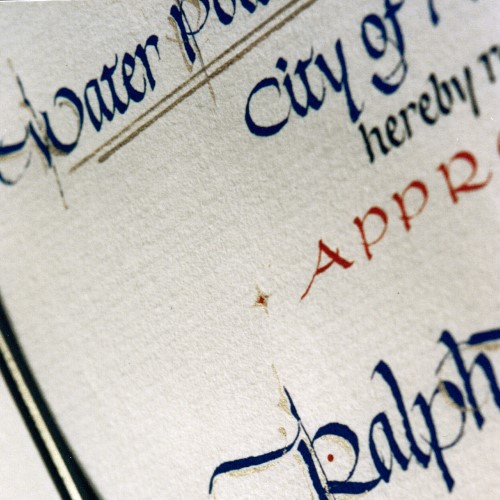 Water
City of
hereby
APPR
Ralph